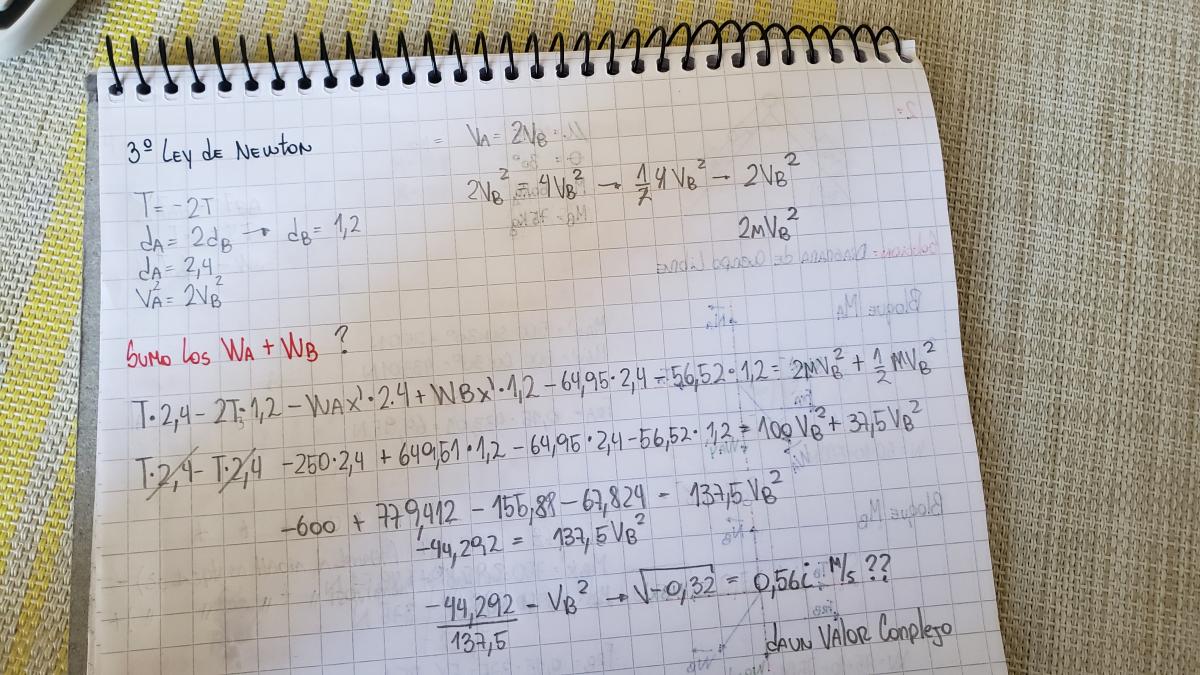 3º Ley de Newton
T = -2T
dA = 2dB → dB = 1,2
dA = 2,4
VA² = 2VB²
= VA = 2VB
2VB² = 4VB² → 1/2 4VB² - 2VB²
2mVB²
Sumo los WA + WB ?
T·2,4 - 2T·1,2 - WAx'·2.4 + WBx'·1,2 - 64,95·2,4 - 56,52·1,2 = 2MVB² + 1/2 MVB²
T·2,4 - T·2,4 -250·2,4 + 649,51·1,2 - 64,95·2,4 - 56,52·1,2 = 100VB² + 37,5VB²
-600 + 779,412 - 155,88 - 67,824 = 137,5VB²
-44,292 = 137,5VB²
-44,292/137,5 - VB² → √-0,32 = 0,56i M/s ??
da un Valor Complejo